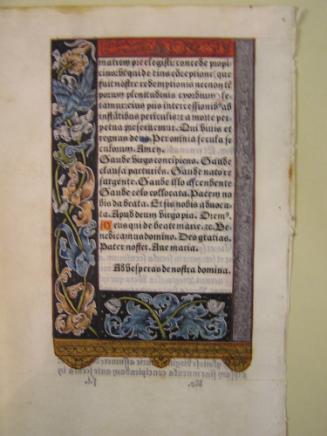 matrem preelegisti: concede propi
cius: ut qui de eius cōceptione, que
fuit nostre redemptionis necnon te
porum plenitudinis exordium le
tamur: eius piis intercessionibꝰ ab
instātibus periculis: et a morte per
petua preseruemur. Qui viuis et
regnas deus. Per omnia secula se
culorum. Amen.
Gaude virgo concipiens. Gaude
clausa parturiēs. Gaude nato re
surgente. Gaude illo ascendente
Gaude celo collocata. Pacem no
bis da beata. Et sis nobis aduoca
ta. Apud deum virgo pia. Oremꝰ.
Deus qui de beate marie. ꝛc. Be
nedicamus domino. Deo gratias.
Pater noster. Aue maria.
Ad vesperas de nostra domina.